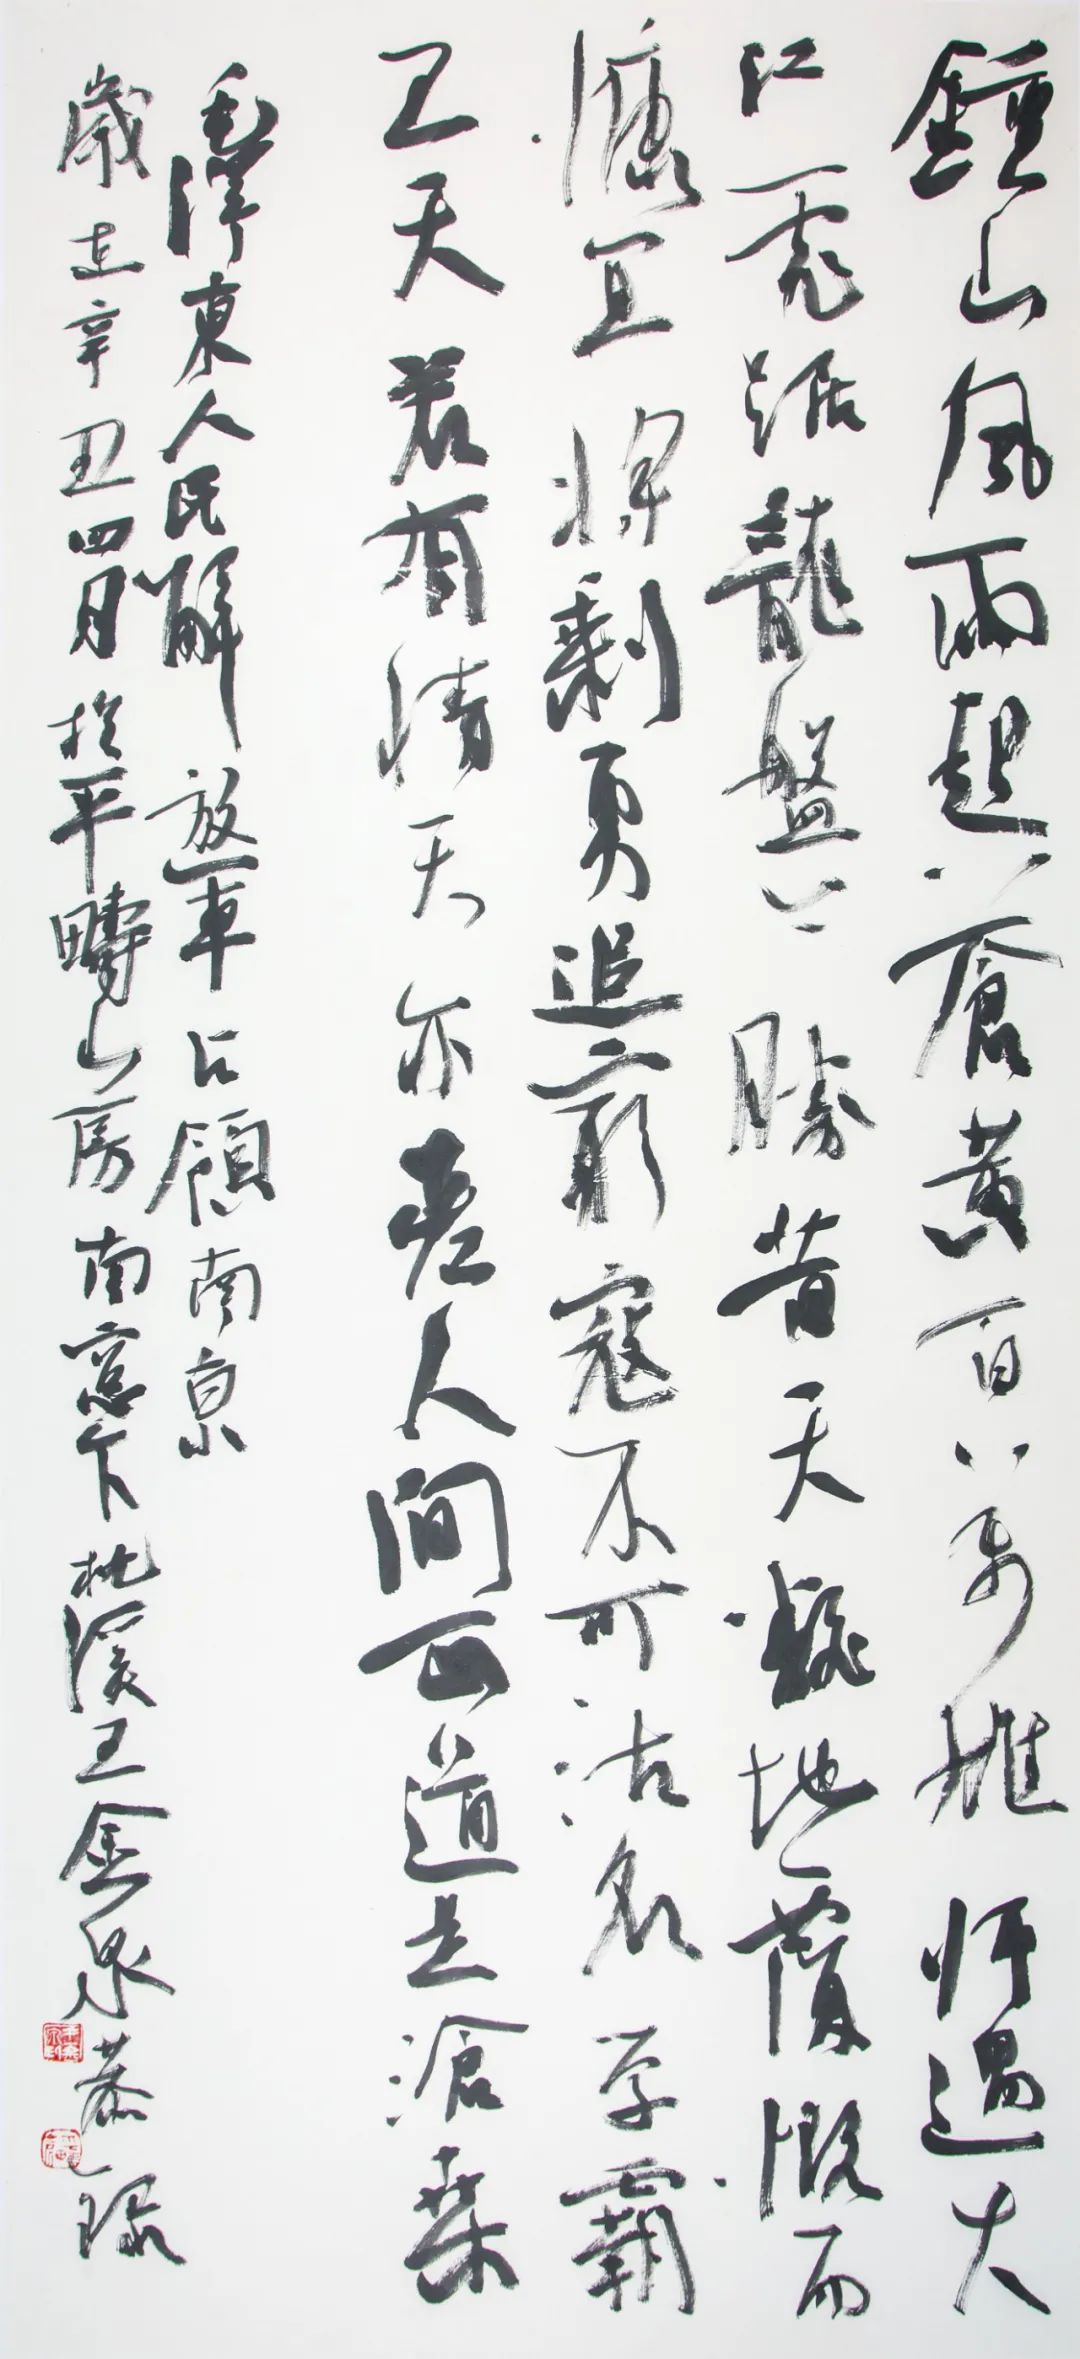 鍾山風雨起蒼黃百萬雄師過大
江虎踞龍盤今勝昔天翻地覆慨而
慷宜將剩勇追窮寇不可沽名学霸
王天若有情天亦老人間正道是滄桑
毛澤東人民解放軍占領南京
歲在辛丑四月於平疇山房南窓下溪王金泉恭録